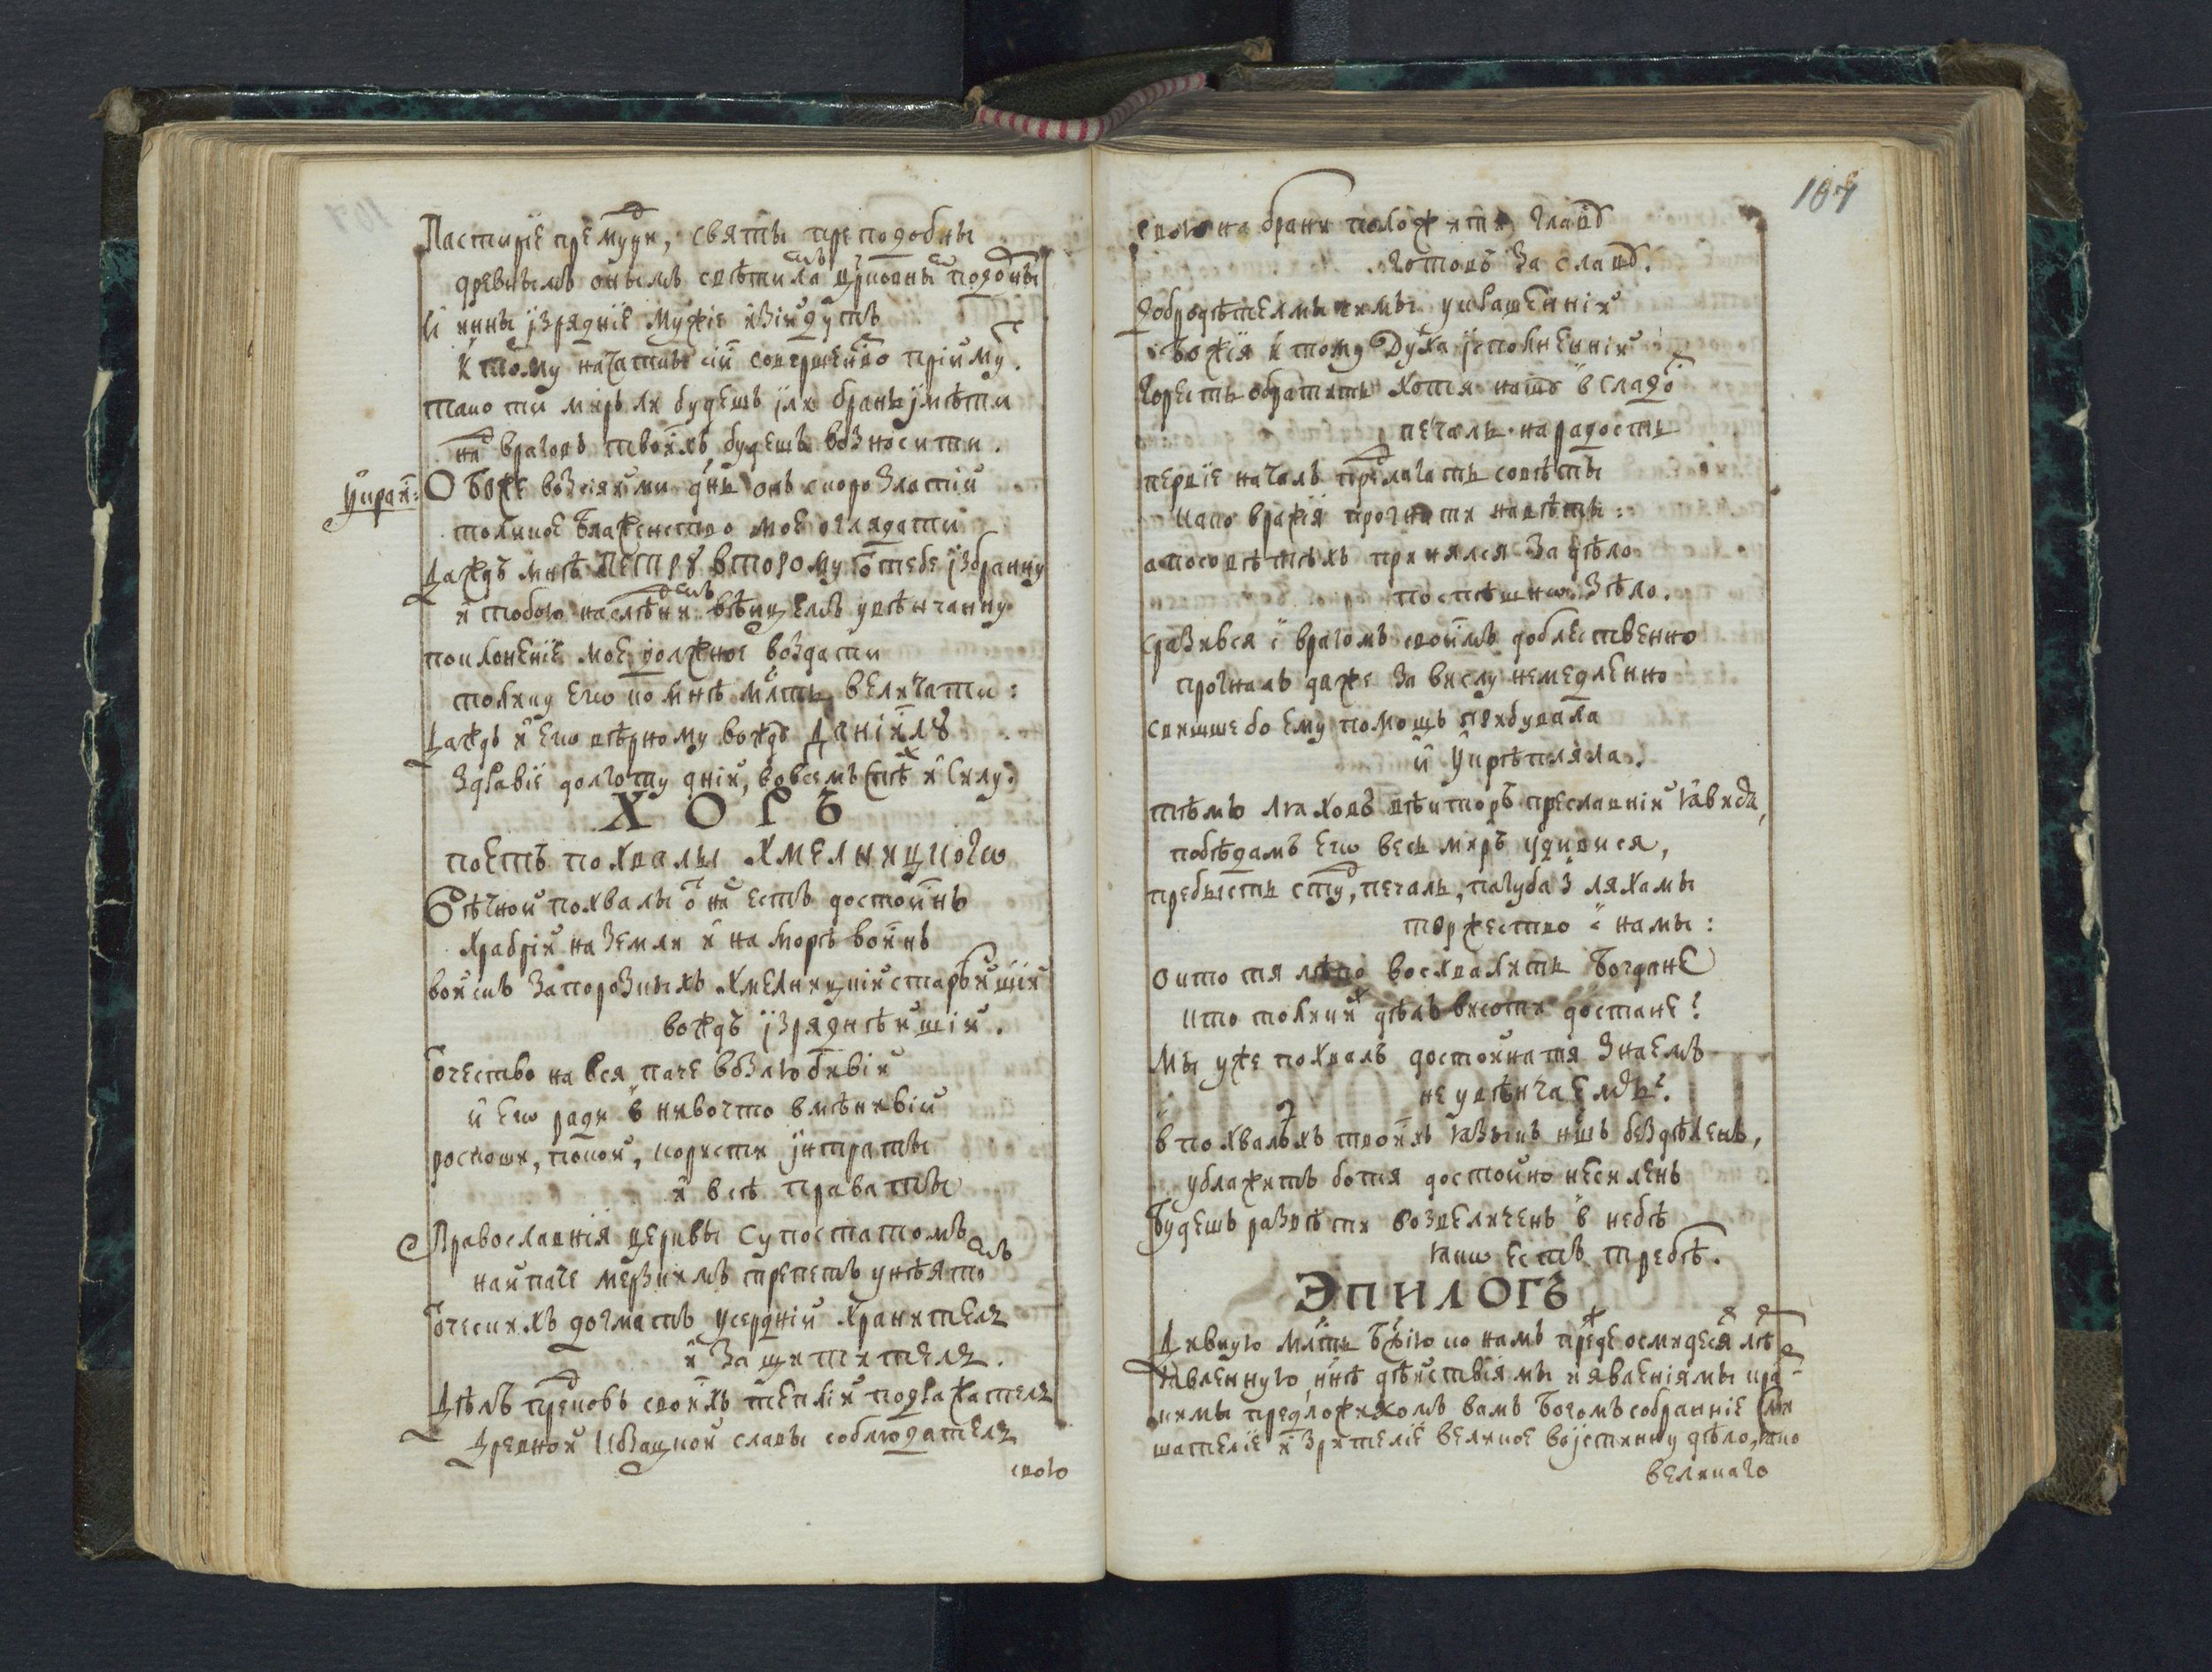 Пастиріе премудри, святы преподобны
древнымъ онымъ свѣтиламъ црковны подобны
И инны ізрядніе мужіе изійдутъ
К тому начатые сій совершенство пріймут.
тако ти миръ ли будешъ іли брань імѣти
над враговъ твоихъ будешъ возносити.
Украи: О Боже возсіяй ми днь онъ скоро златій
толикое блаженство мое оглядати
Даждъ мнѣ Петру второму от тебе ізбранну
и тобою наслѣднимъ вѣнцемъ увѣнчанну
поклоненіе мое должное воздати
толику его ко мнѣ млсть величати:
Даждъ и его вѣрному вождѣ Даніилу
здравіе долготу дній, вовсемъ спѣх и силу.
ХОРЪ
поетъ похвалы Хмелницкого
Вѣчной похвалы от нас естъ достоинъ
Храбрій на земли и на морѣ воинъ
войскъ запорозкыхъ Хмелницкій старѣйшій
вождъ ізряднѣйшій.
Отчество на вся паче возлюбивій
и его ради в нивочто вмѣнивій
роскоши, покой, користи інтраты
и всѣ приваты
Православнія церквы супостатомъ
найпаче мерзкимъ трепетъ унѣятомъ
Отческихъ догматъ усердній хранителъ
и защитителъ.
Дѣлъ предковъ своихъ теплій подражателъ
Древной козацкой славы соблюдателъ
свою
107
свою на брани положити главу
готовъ за славу.
Добродѣтелмы симы украшенній
Божія к тому Духа ісполненній
горесть обратитъ хотя нашу в сладост
печаль на радость
первіе началъ предлагать совѣты
како вражія прогнати навѣты:
а по совѣтѣхъ принялся за дѣло
поспѣшно зѣло.
сразився с врагомъ своимъ доблественно
прогналъ даже за вислу немедленно
свишше бо ему помощь прибувала
и укрѣпляла.
тѣмъ ляховъ вѣкторъ преславній явися,
побѣдамъ его весь миръ удивися,
пребысть студ, печаль, пагуба з ляхамы
торжество с намы:
О кто тя лѣпо восхвалить Богдане
кто толикихъ дѣлъ висоти достане?
Мы уже похвалъ достойна тя знаемъ
не увѣнчаемъ?
в похвалѣхъ твоихъ языкъ нашъ бездѣленъ,
ублажитъ бо тя достойно несиленъ
Будешъ развѣ ти возвеличенъ в небѣ
яко естъ требѣ.
Эпилогъ
Дивную млсть Бжію ко намъ прежде осмидесят лѣт
явленную, ннѣ дѣйствіямы и явленіямы крат-
кимы предложихомъ вамъ Богомъ собранніе слы
шателіе и зрителіе великое воістинну дѣло, яко
великаго